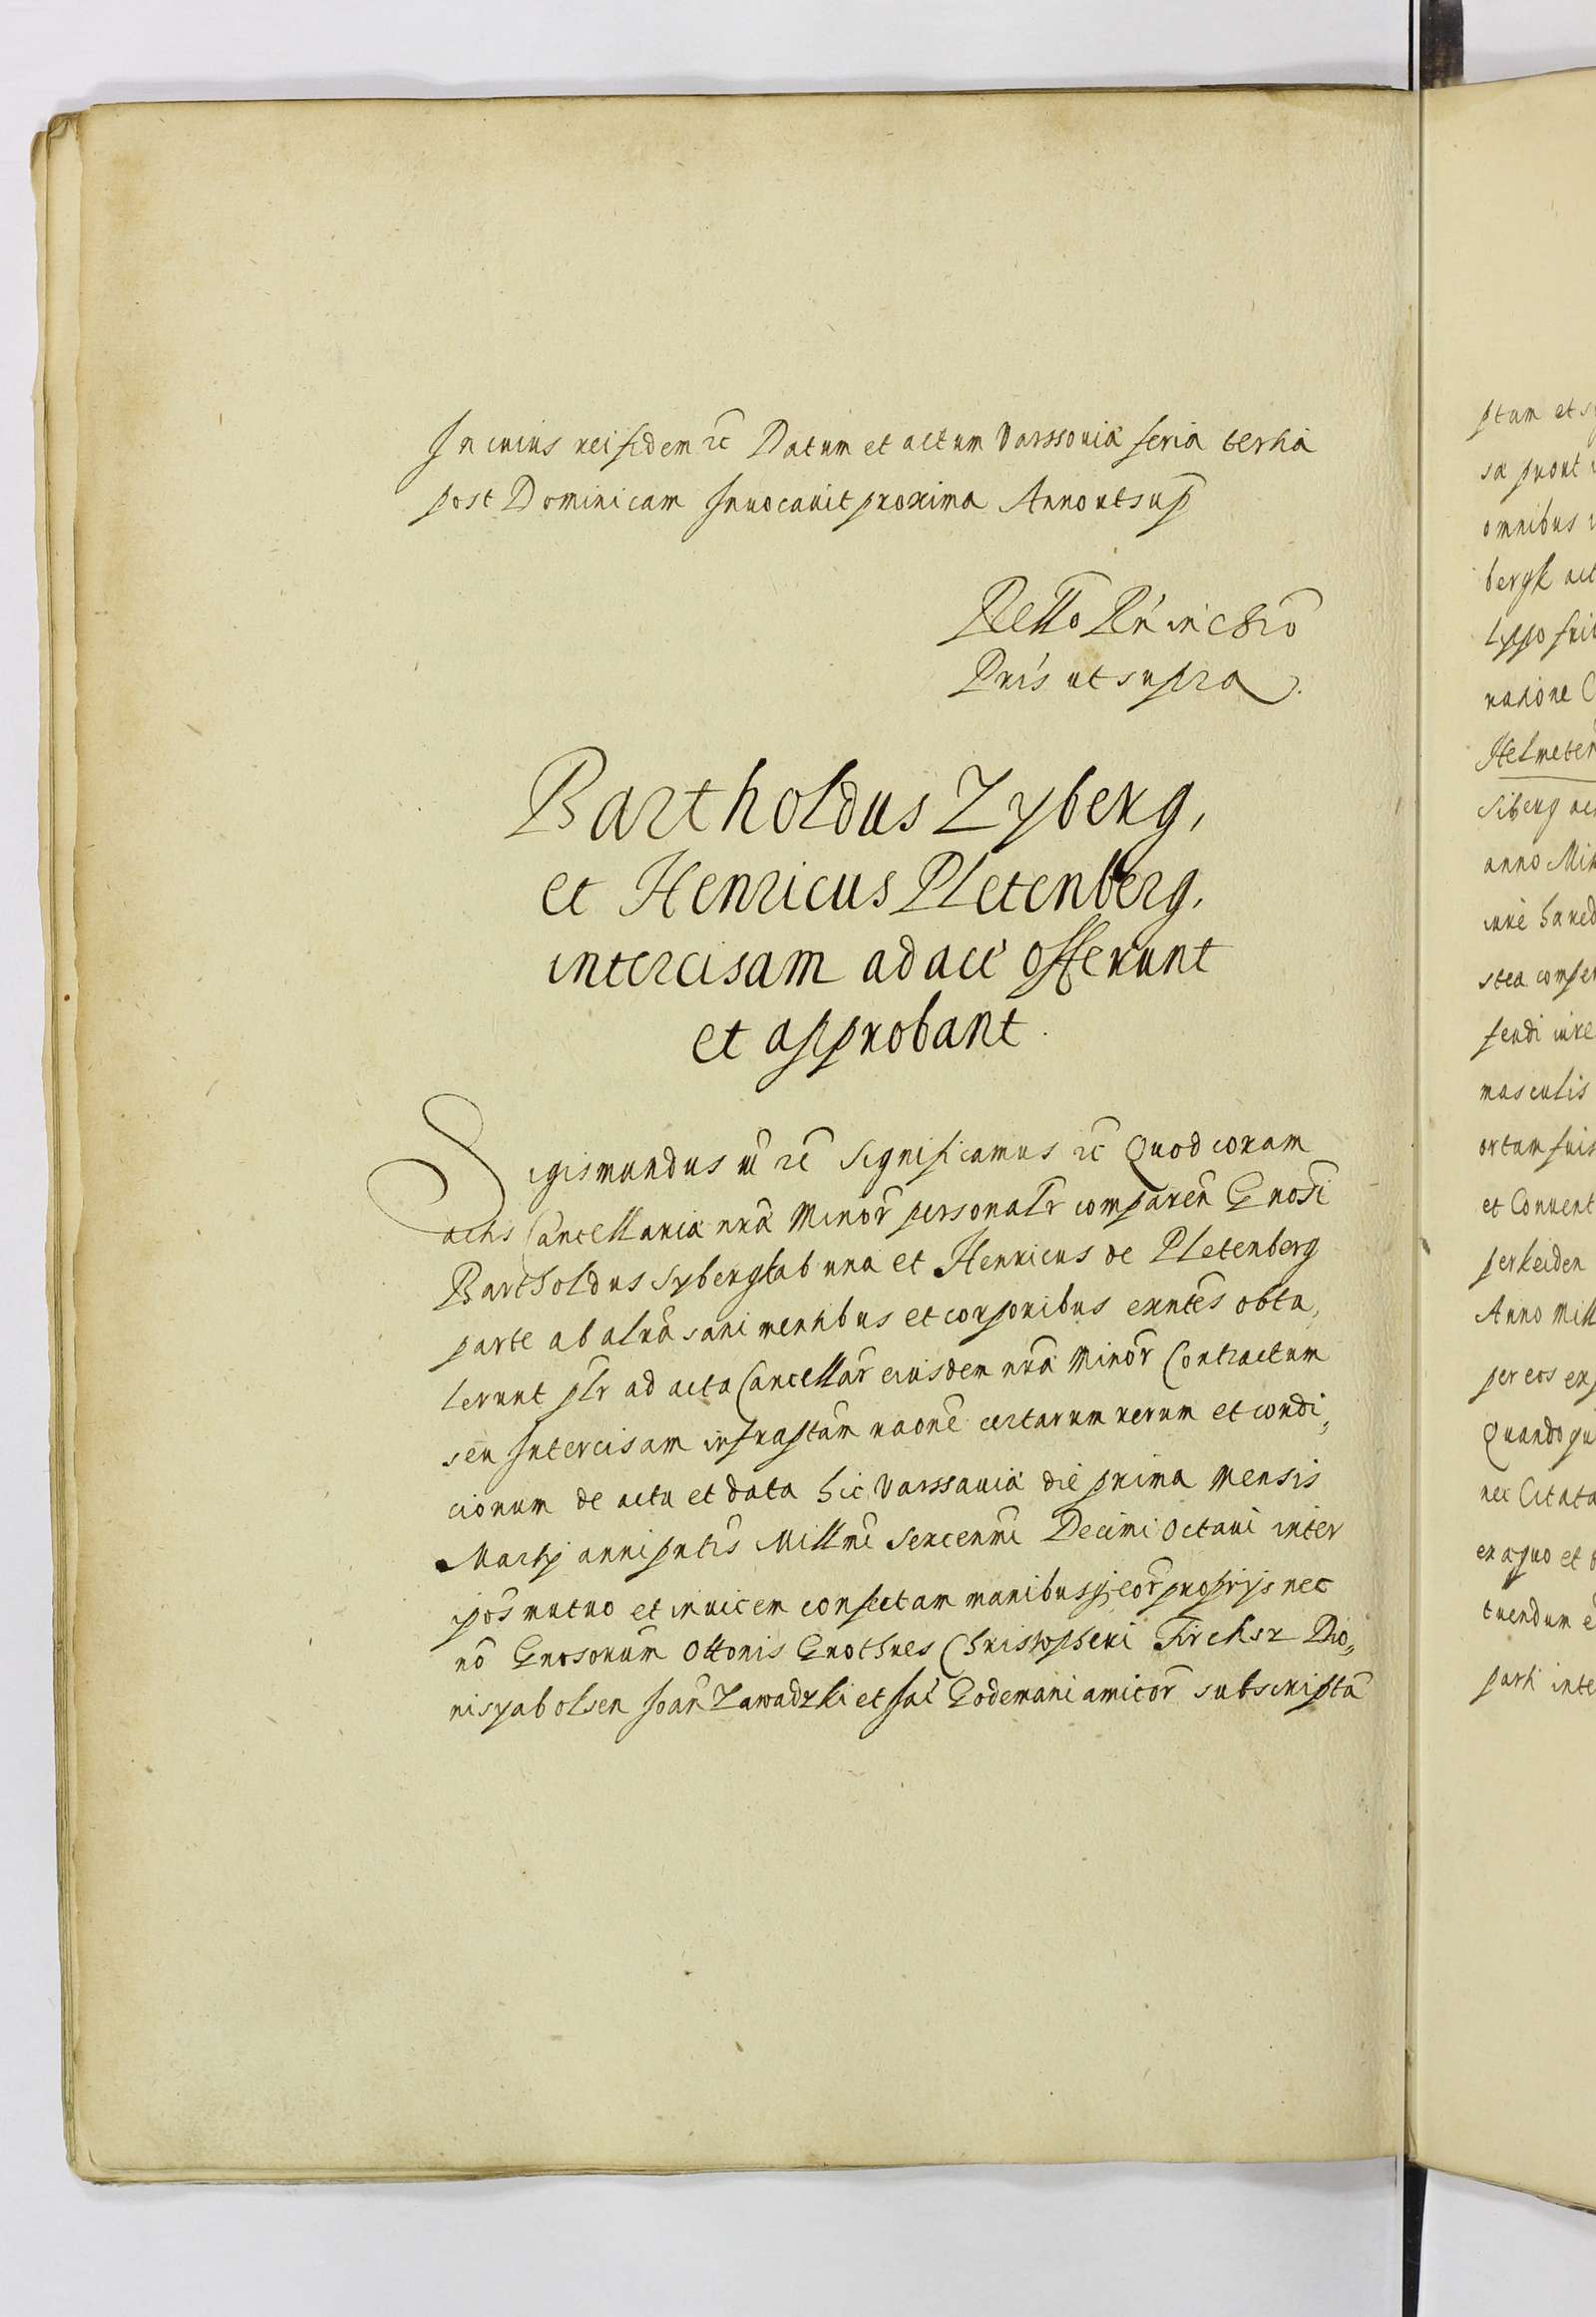 In cuius rei fidem etc Datum et actum Varssouiæ feria tertia
post Dominicam Inuocauit proxima Anno ut sup
Rello Rn in c8io
Pnis ut supra.
Bartholdus Zyberg,
et Henricus Pletenberg,
intercisam ad acē offerunt
et approbant.
Sigismundus III etc Significamus etc Quod coram
actis Cancellariæ nræ Minor personalr comparen Gnosi
Bartholdus Syberg k ab una et Henricus de Pletenberg
parte ab alra sani mentibus et corporibus exntes obtu,
lerunt plr ad acta Cancellar eiusdem nræ Minor Contractum
seu Intercisam infrastam raone certarum rerum et condi,
cionum de actu et data hic Varssauiæ die prima Mensis
Martij anni pntis Millmi Sexcenmi Decimi Octaui inter
ipos mutuo et inuicem confectam manibusq; eor proprijs nec
no Gnrosorum Ottonis Grothues Christopheri Firchsz Dio,,
nisy ab olsen Joan Zawadzki et Jac Godemani amicor subscripta
ptam et s
sa prout
omnibus
bergk act
Lypo fri
ratione C
Helmeten
Siberg
anno Mil
iure hared
stea
feudi iure
masculis
ortam fuis
et Conuent
perkeiden
Anno Mill
per eos ex
Quando qu
nec Citata
ex aquo et
tuendum e
parti inte